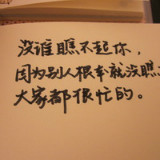 没谁瞧不起你,
因为别人根本就没瞧你,
大家都很忙的。